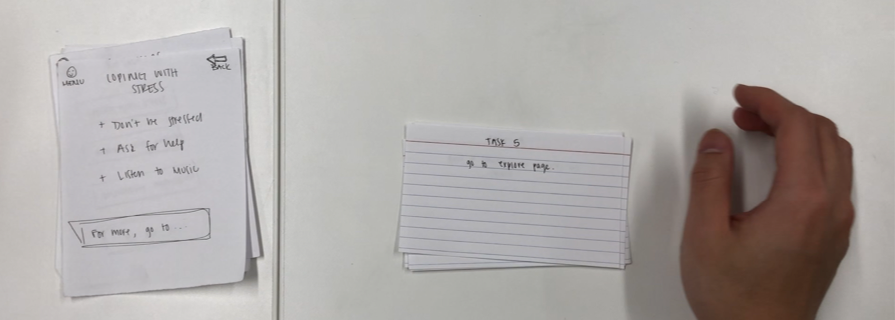 MENU
BACK
COPING WITH
STRESS
+ Don't be stressed
+ Ask for help
+ Listen to music
For more, go to ...
TASK 5
go to explore page.